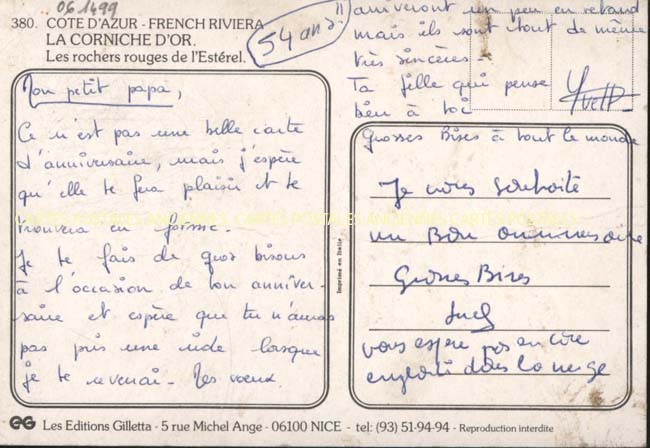 061499
380. COTE D'AZUR - FRENCH RIVIERA
LA CORNICHE D'OR.
Les rochers rouges de l'Estérel.
54 ans
Mon petit papa,
Ce n'est pas une belle carte
d'anniversaire, mais j'espère
qu'elle te fera plaisir et te
trouvera en forme.
Je te fais de gros bisous
à l'occasion de ton anniver-
saire et espère que tu n'auras
pas pris une ride lorsque
je te reverrai. Mes voeux
arriveront un peu en retard
mais ils sont tout de même
très sincères.
Ta fille qui pense
bien à toi
Yvette
Grosses Bises à tout le monde
Je vous souhaite
un Bon anniversaire
Grosses Bises
vous espère pas encore
englouti dans la neige
Imprimé en Italie
CARTES POSTALES ANCIENNES
EG Les Editions Gilletta - 5 rue Michel Ange - 06100 NICE - tel: (93) 51-94-94 - Reproduction interdite